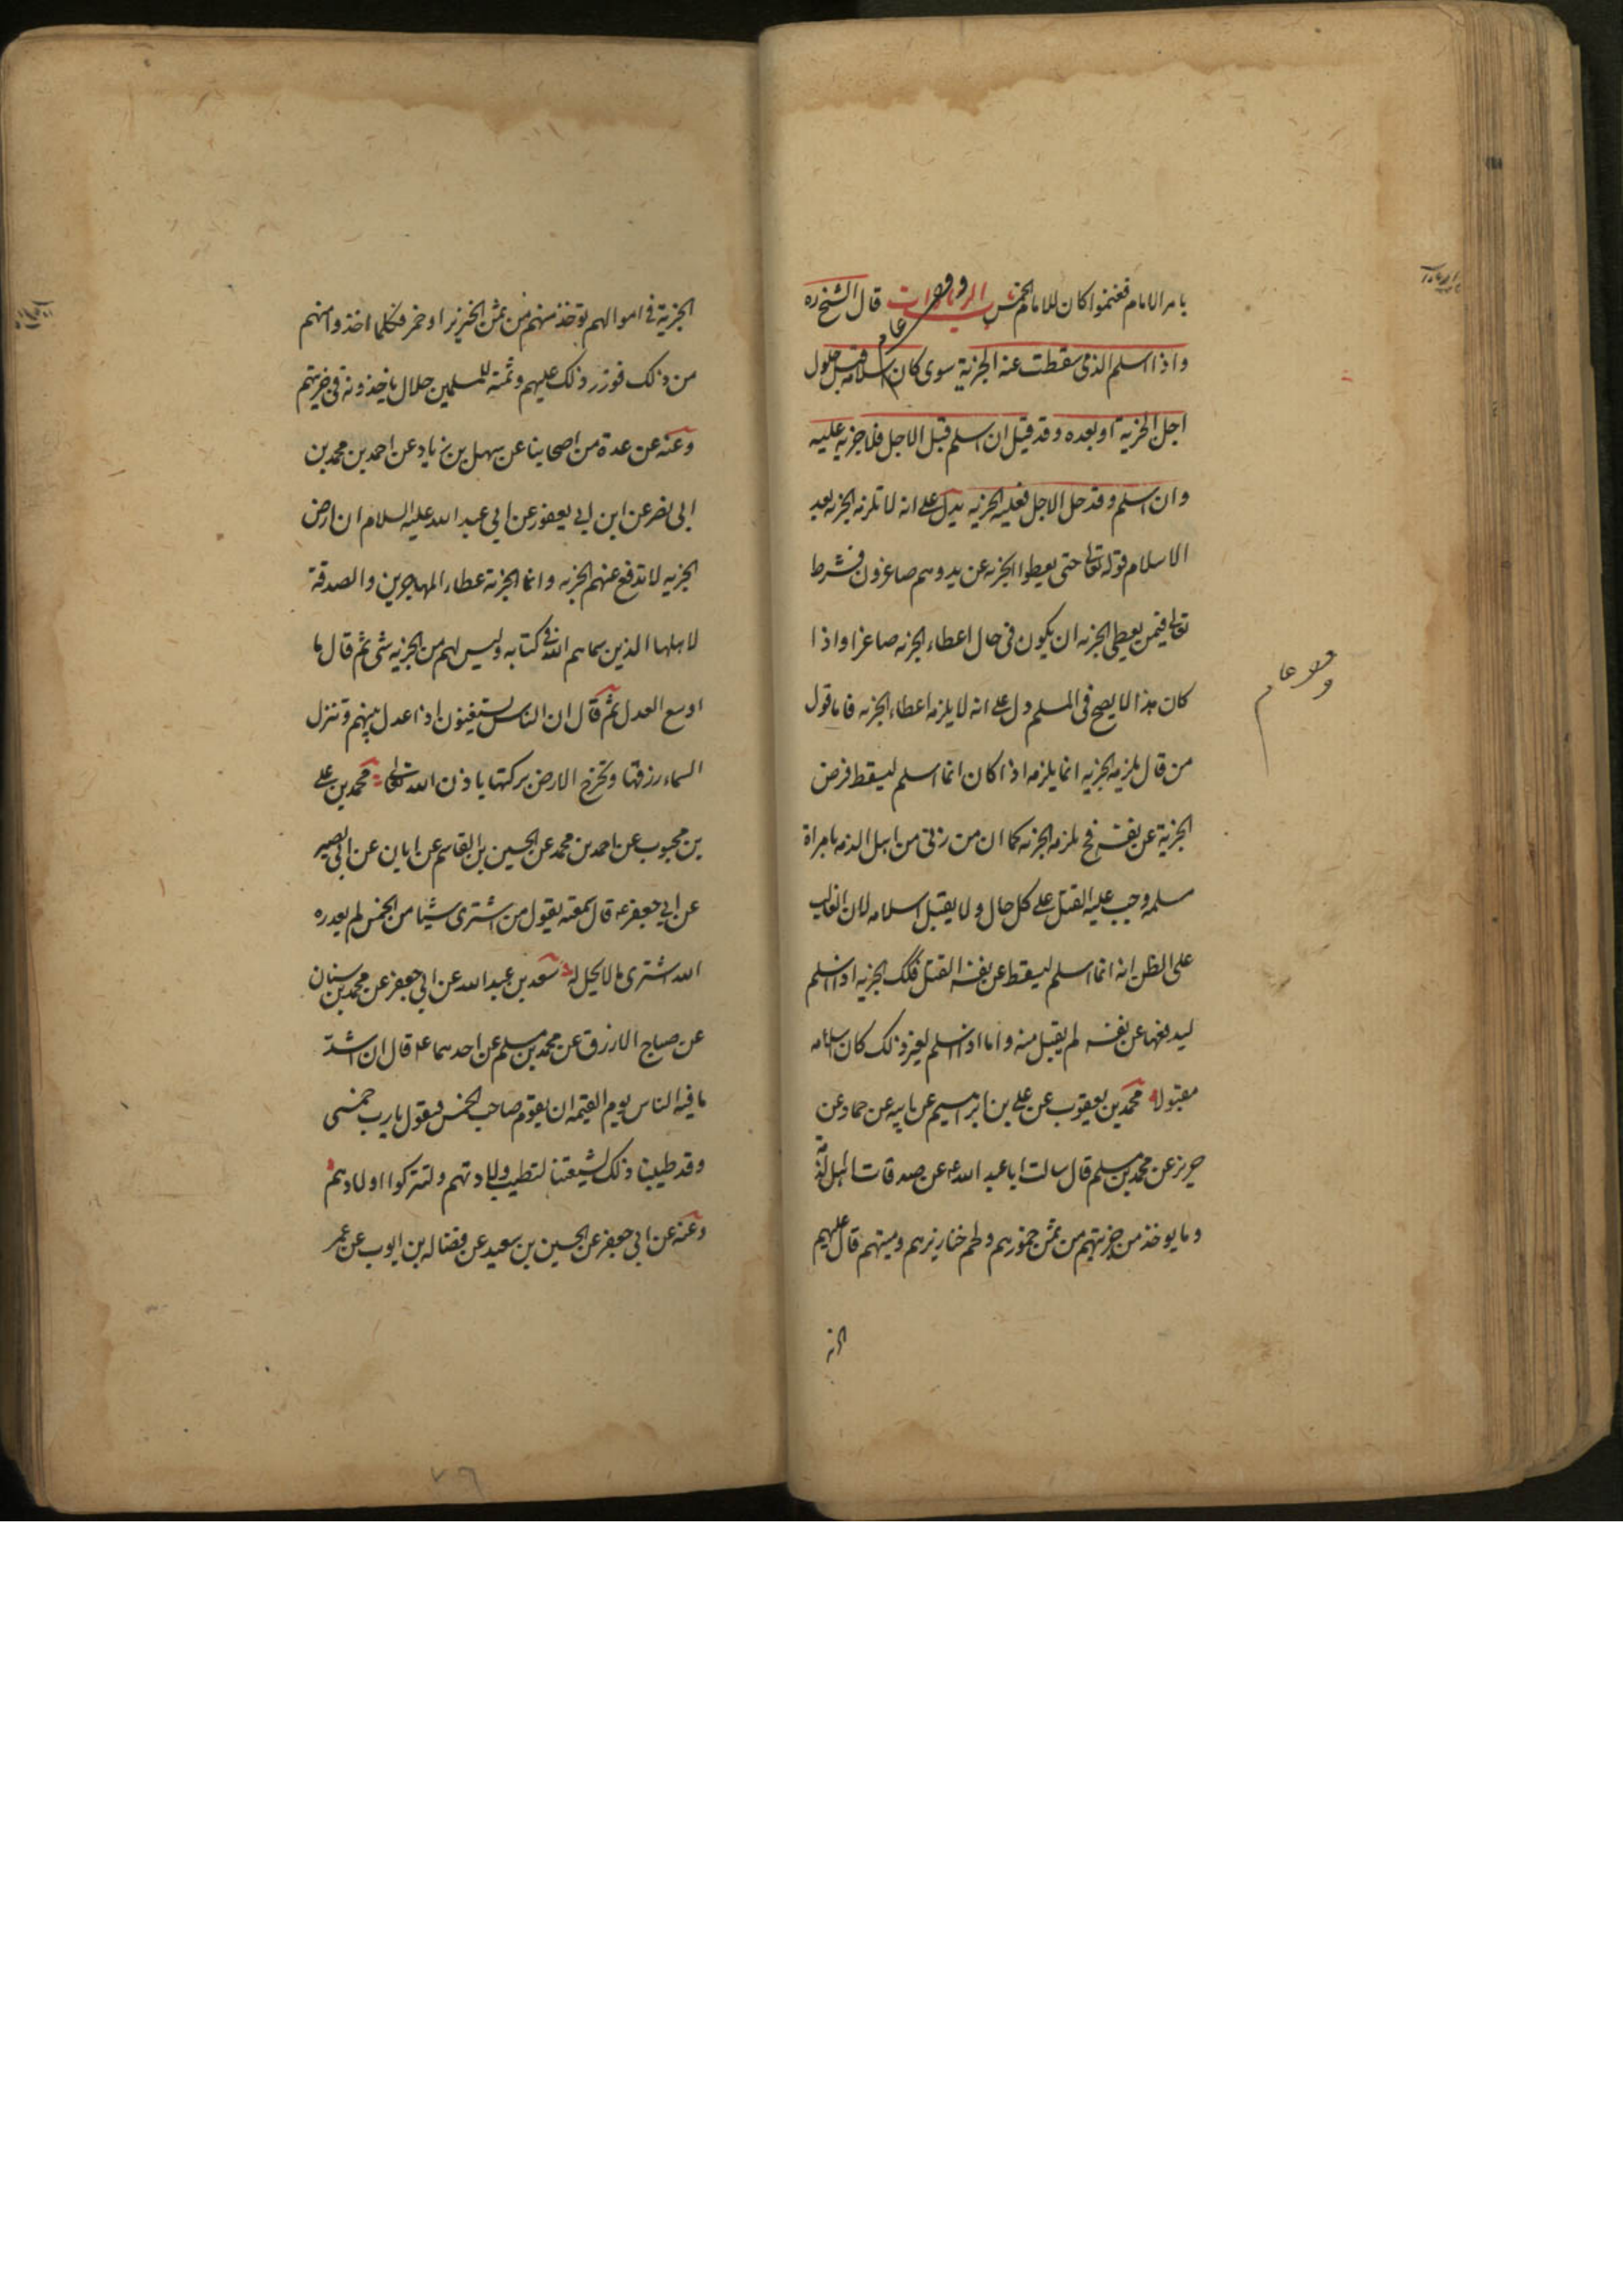 بامر الامام فغنموا كان للامام الخمس باب الزيادات قال الشيخ ره
واذا اسلم الذمى سقطت عنه الجزية سوى كان اسلامه قبل حلول
اجل الجزية او بعده وقد قيل ان اسلم قبل الاجل فلا جزيه عليه
وان اسلم وقد حل الاجل فعليه الجزيه يدل على انه لا تلزمه الجزيه بعد
الاسلام قوله تعالى حتى يعطوا الجزيه عن يد وهم صاغرون فشرط
تعالى فيمن يعطى الجزيه ان يكون فى حال اعطاء الجزيه صاغرا واذا
كان هذا لا يصح فى المسلم دل على انه لا يلزمه اعطاء الجزيه فاما قول
من قال يلزمه الجزيه انما يلزمه اذا كان انما اسلم ليسقط فرض
الجزية عن نفسه فح يلزمه الجزيه كما ان من زنى من اهل الذمه بامراة
مسلمه وجب عليه القتل على كل حال ولا يقبل اسلامه لان الغالب
على الظن انه انما اسلم ليسقط عن نفسه القتل فكك الجزيه اذا اسلم
ليدفعها عن نفسه لم يقبل منه واما اذا اسلم لغير ذلك كان اسلامه
مقبولا محمد بن يعقوب عن على بن ابرهيم عن ابيه عن حماد عن
حريز عن محمد بن مسلم قال سالت ابا عبد الله ع عن صدقات اهل الذمة
وما يوخذ من جزيتهم من ثمن خمورهم ولحم خنازيرهم وميتهم قال عليهم
الجزية فى اموالهم توخذ منهم من ثمن الخنزير او خمر فكلما اخذوا منهم
من ذلك فوزر ذلك عليهم وثمنه للمسلمين حلال ياخذونه فى جزيتهم
وعنه عن عدة من اصحابنا عن سهل بن زياد عن احمد بن محمد بن
ابى نصر عن ابن ابى يعفور عن ابى عبد الله عليه السلام ان ارض
الجزيه لا تدفع عنهم الجزيه وانما الجزية عطاء المهاجرين والصدقة
لاهلها الذين سماهم الله فى كتابه وليس لهم من الجزيه شى ثم قال ما
اوسع العدل ثم قال ان الناس يستغنون اذا عدل بينهم وتنزل
السماء رزقها وتخرج الارض بركتها باذن الله تعالى محمد بن على
بن محبوب عن احمد بن محمد عن الحسين عن القاسم عن ابان عن ابى بصير
عن ابى جعفر ع قال سمعته يقول من اشترى شيئا من الخمس لم يعدره
الله اشترى ما لا يحل له سعد بن عبد الله عن ابى جعفر عن محمد بن سنان
عن صباح الازرق عن محمد بن مسلم عن احدهما ع قال ان اشد
ما فيه الناس يوم القيمه ان يقوم صاحب الخمس فيقول يا رب خمسى
وقد طيبنا ذلك لشيعتنا لتطيب ولادتهم ولتزكوا اولادهم
وعنه عن ابى جعفر عن الحسين بن سعيد عن فضاله بن ايوب عن عمر